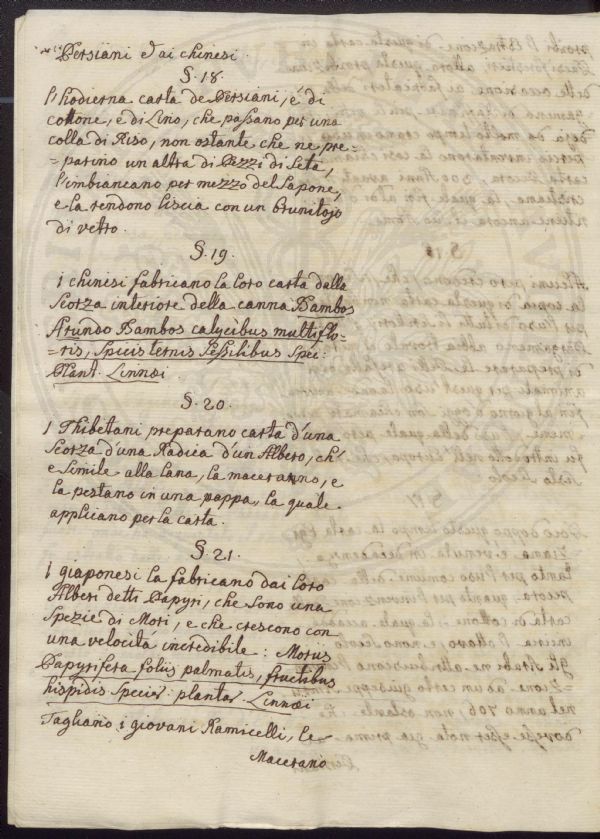 Persiani e dai chinesi.
§. 18.
l'hodierna carta de Persiani, é di
cottone, e di Lino, che passano per una
colla di Riso, non ostante che ne pre-
=parino un altra di Pezzi di Seta,
l'imbiancano per mezzo del Sapone,
e la rendono liscia con un Brunitojo
di vetro.
§. 19.
i chinesi fabricano la loro carta dalla
Scorza interiore della canna Bambos
Arundo Bambos calycibus multiflo-
=ris, Spicis ternis Sessilibus Spec:
Plant. Linnæi.
§. 20.
i Thibetani preparano carta d'una
Scorza d'una Radica d'un Albero, ch'
e Simile alla lana, la maceranno, e
la pestano in una pappa, la quale
applicano per la carta.
§. 21.
i giaponesi la fabricano dai loro
Alberi detti Papyri, che sono una
Spezie di Mori, e che crescono con
una velocitá incredibile: Morus
Papyrifera foliis palmatis, fructibus
hispidis Specier: plantar Linnæi
Tagliano i giovani Ramicelli, le
Macerano